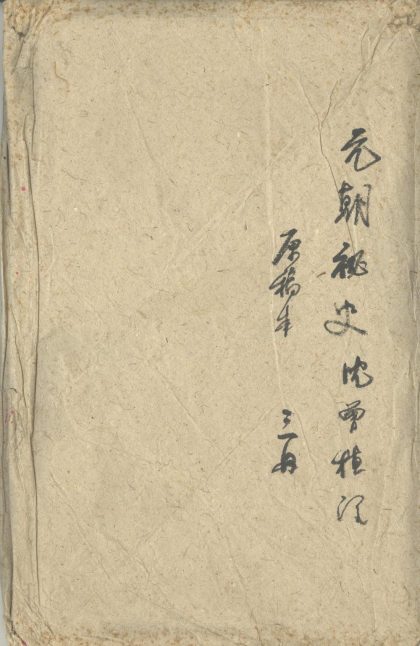 元朝祕史沈曾植注
原稿本 三册